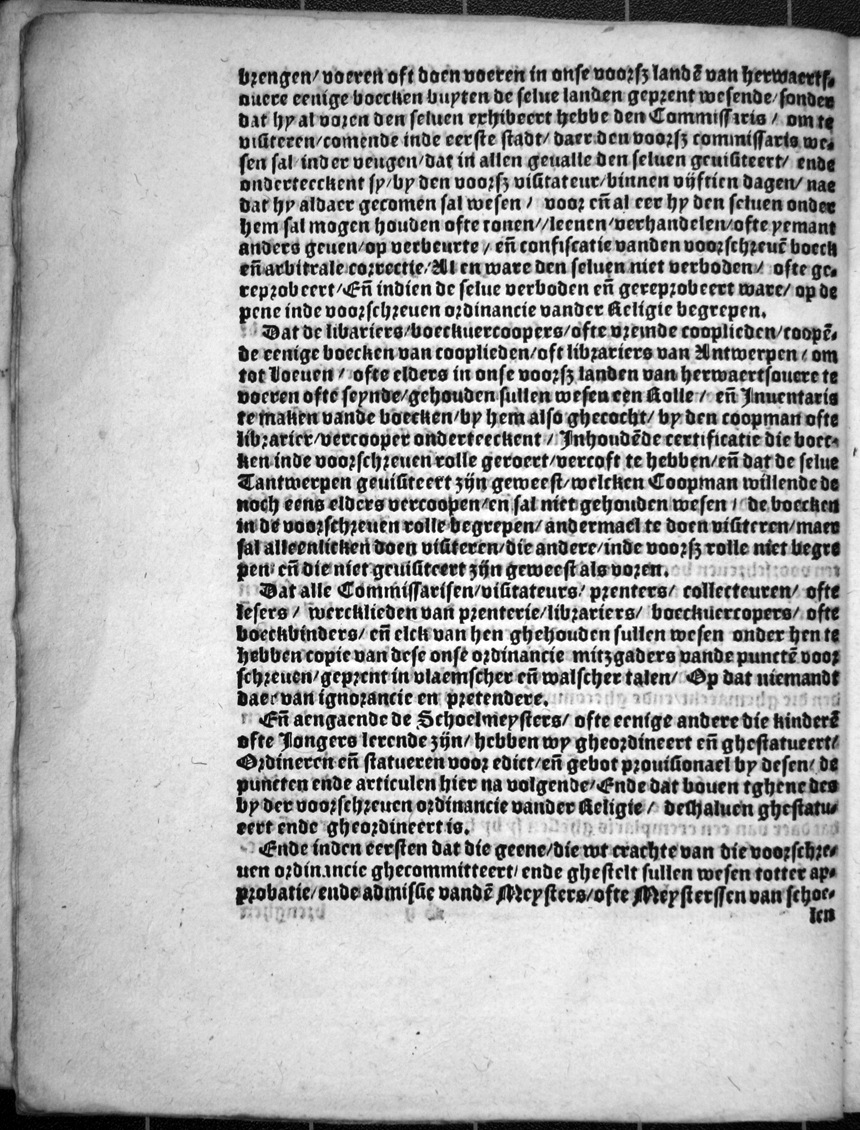 brengen/ voeren oft doen voeren in onse voorsz landē van herwaerts-
ouere eenige boecken buyten de selue landen geprent wesende/ sonder
dat hy al voren den seluen exhibeert hebbe den Commissaris / om te
visiteren/comende inde eerste stadt/ daer den voorsz commissaris we-
sen sal/ inder veugen/dat in allen geualle den seluen geuisiteert/ ende
onderteeckent sy/by den voorsz visitateur/binnen vijftien dagen/ nae
dat hy aldaer gecomen sal wesen / voor eñ al eer hy den seluen onder
hem sal mogen houden ofte tonen//leenen/verhandelen/ofte yemant
anders geuen/op verbeurte / eñ confiscatie vanden voorschreuē boeck
eñ arbitrale correctie/Al en ware den seluen niet verboden/ ofte ge-
reprobeert/Eñ indien de selue verboden eñ gereprobeert ware/ op de
pene inde voorschreuen ordinancie vander Religie begrepen.
Dat de libariers/boeckuercoopers/ofte vremde cooplieden/coopē-
de eenige boecken van cooplieden/oft librariers van Antwerpen / om
tot Loeuen / ofte elders in onse voorsz landen van herwaertsouere te
voeren ofte seynde/gehouden sullen wesen een Rolle / eñ Inuentaris
te maken vande boecken/by hem also ghecocht/ by den coopman ofte
librarier/vercooper onderteeckent / Inhoudēde certificatie die boec-
ken inde voorschreuen rolle geroert/vercoft te hebben/eñ dat de selue
Tantwerpen geuisiteert zijn geweest/welcken Coopman willende de
noch eens elders vercoopen/en sal niet gehouden wesen / de boecken
in de voorschreuen rolle begrepen/ andermael te doen visiteren/maer
sal alleenlicken doen visiteren/die andere/inde voorsz rolle niet begre
pen/ eñ die niet geuisiteert zijn geweest als voren.
Dat alle Commissarisen/visitateurs/ prenters/ collecteuren/ ofte
lesers / wercklieden van prenterie/librariers/ boeckuercopers/ ofte
boeckbinders/ eñ elck van hen ghehouden sullen wesen onder hen te
hebben copie van dese onse ordinancie mitzgaders vande punctē voor
schreuen/geprent in vlaemscher eñ walscher talen/ Op dat niemandt
daer van ignorancie en pretendere.
Eñ aengaende de Schoelmeysters/ ofte eenige andere die kinderē
ofte Jongers lerende zijn/ hebben wy gheordineert eñ ghestatueert/
Ordineren eñ statueren voor edict/eñ gebot prouisionael by desen/ de
puncten ende articulen hier na volgende/Ende dat bouen tghene des
by der voorschreuen ordinancie vander Religie / deshaluen ghestatu-
eert ende gheordineert is.
Ende inden eersten dat die geene/die wt crachte van die voorschre-
uen ordinancie ghecommitteert/ ende ghestelt sullen wesen totter ap-
probatie/ende admissie vandē Meysters/ofte Meysterssen van schoe-
len